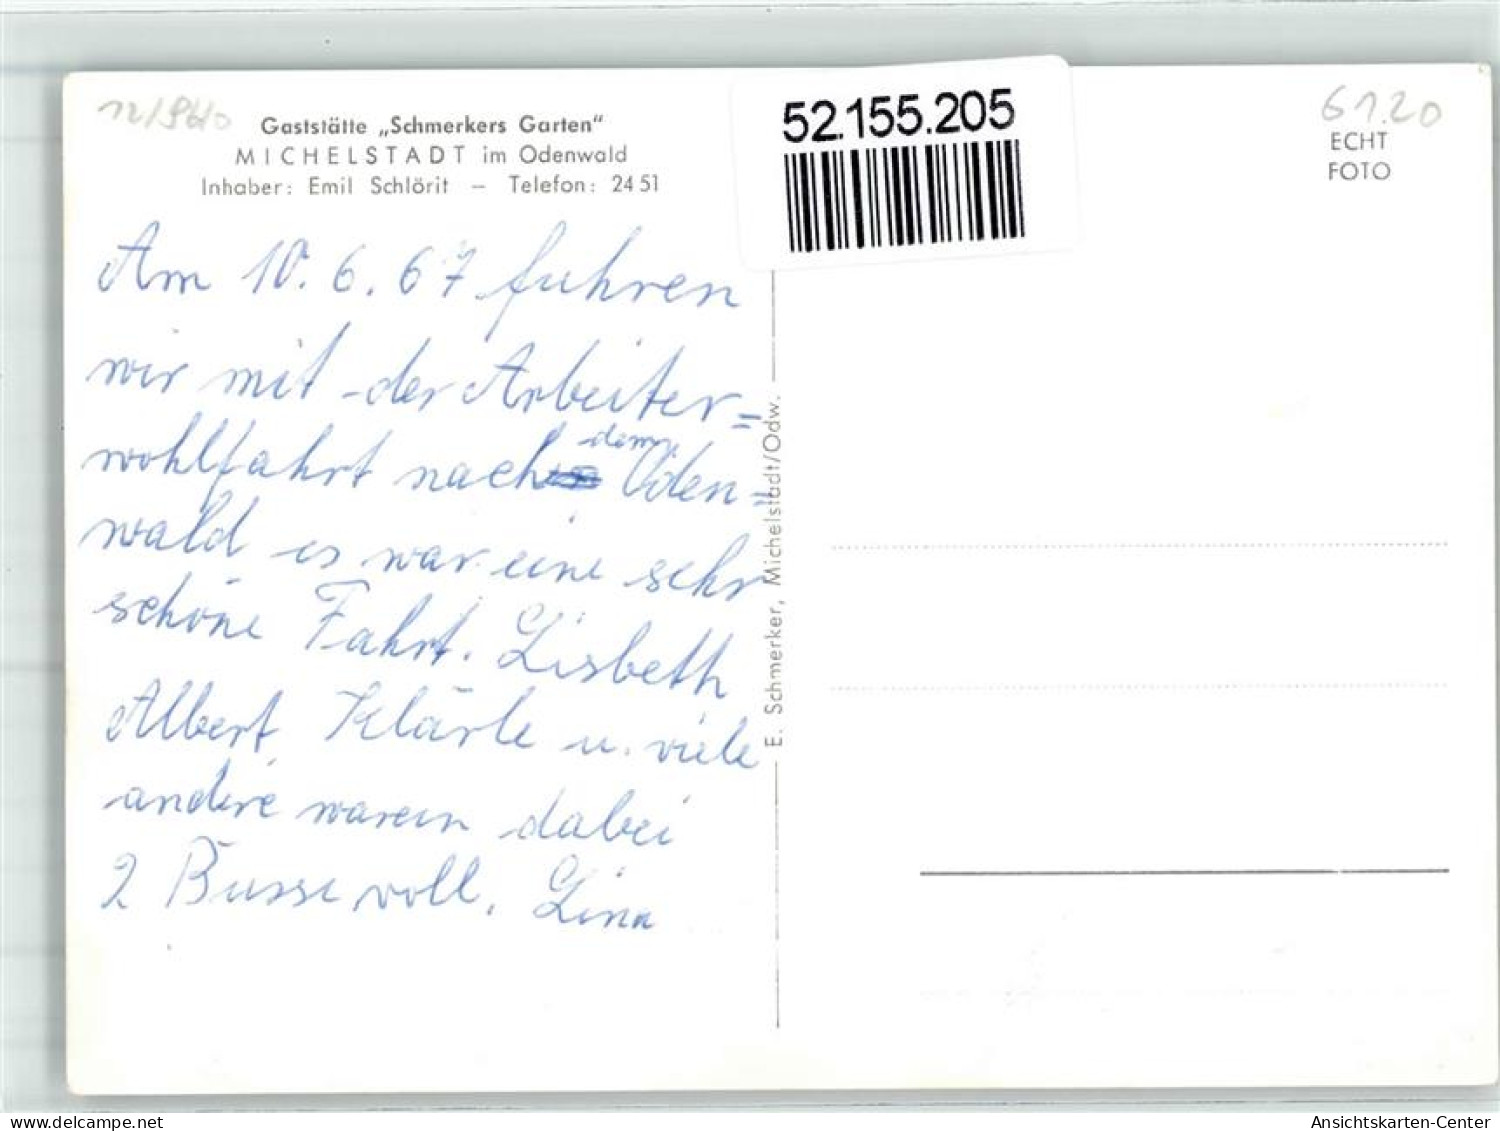 12/
Gaststätte „Schmerkers Garten"
MICHELSTADT im Odenwald
Inhaber: Emil Schlörit – Telefon: 2451
52.155.205
6120
ECHT
FOTO
Am 10. 6. 67 fuhren
wir mit der Arbeiter=
wohlfahrt nach dem Oden=
wald es war eine sehr
schöne Fahrt. Lisbeth
Albert, Klärle u. viele
andere waren dabei
2 Busse voll. Lina
E. Schmerker, Michelstadt/Odw.
www.delcampe.net
Ansichtskarten-Center